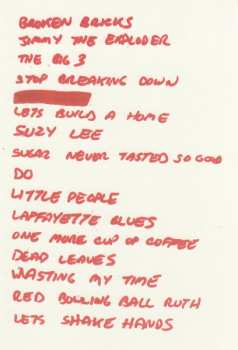 BROKEN BRICKS
JIMMY THE EXPLODER
THE BIG 3
STOP BREAKING DOWN
LETS BUILD A HOME
SUZY LEE
SUGAR NEVER TASTED SO GOOD
DO
LITTLE PEOPLE
LAFFAYETTE BLUES
ONE MORE CUP OF COFFEE
DEAD LEAVES
WASTING MY TIME
RED BOWLING BALL RUTH
LETS SHAKE HANDS